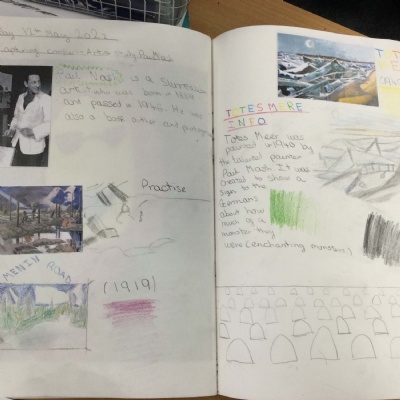 12th May 2021
Artist study
Paul Nash is a
Artist who was born in 1889
and passed in 1946. He was
also a book
Practise
MENIN ROAD
(1919)
TOTES MERE
1940
TOTES MERE
INFO
Totes Meer was
painted in 1940 by
the talented painter
Paul Nash. It was
created to show a
sign to the
Germans
about how
much of a
monster they
were (enchanting monster!)